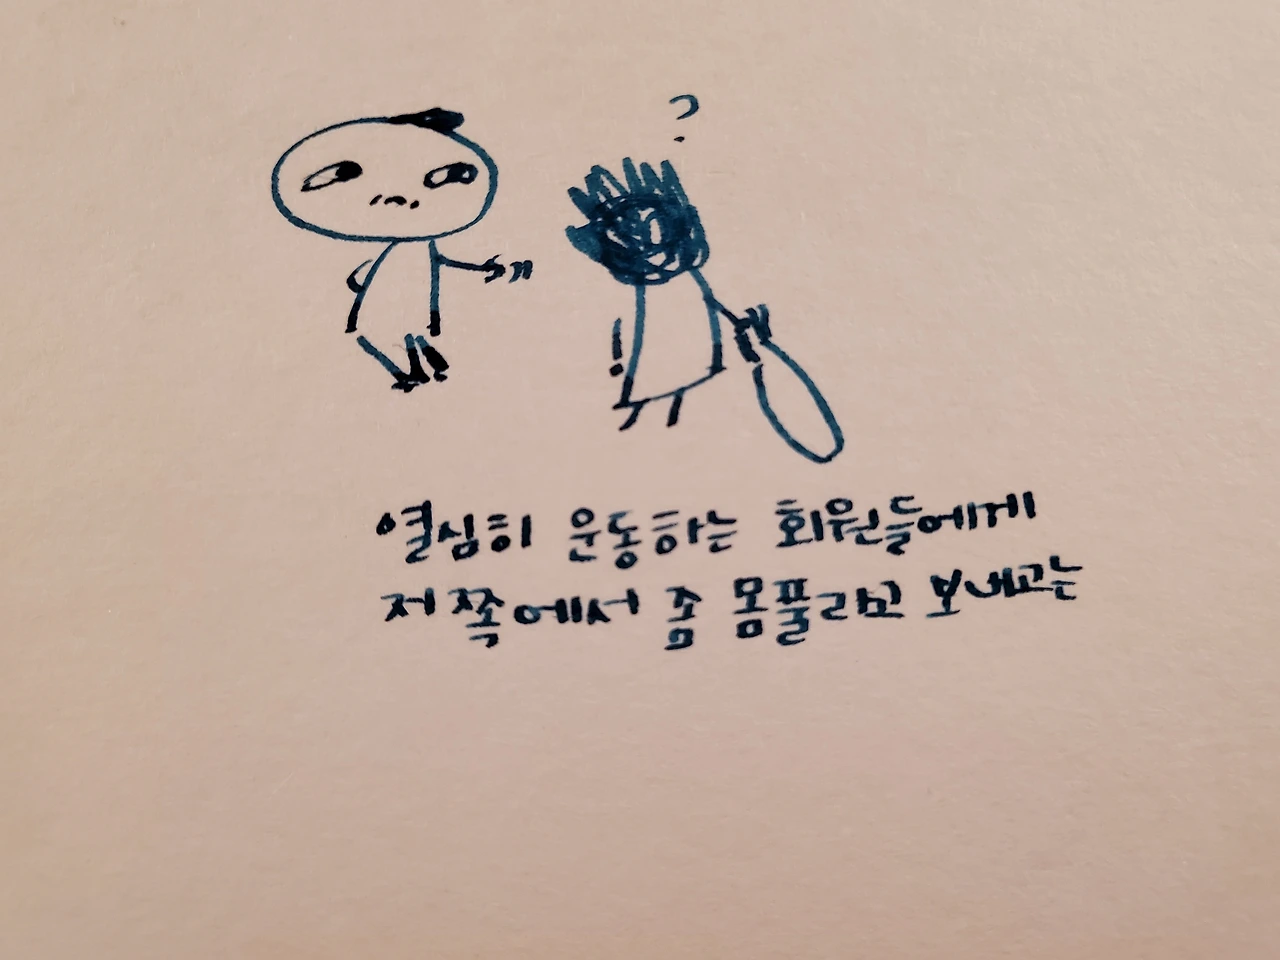 ?
열심히 운동하는 회원들에게
저쪽에서 좀 몸풀라고 보내고는